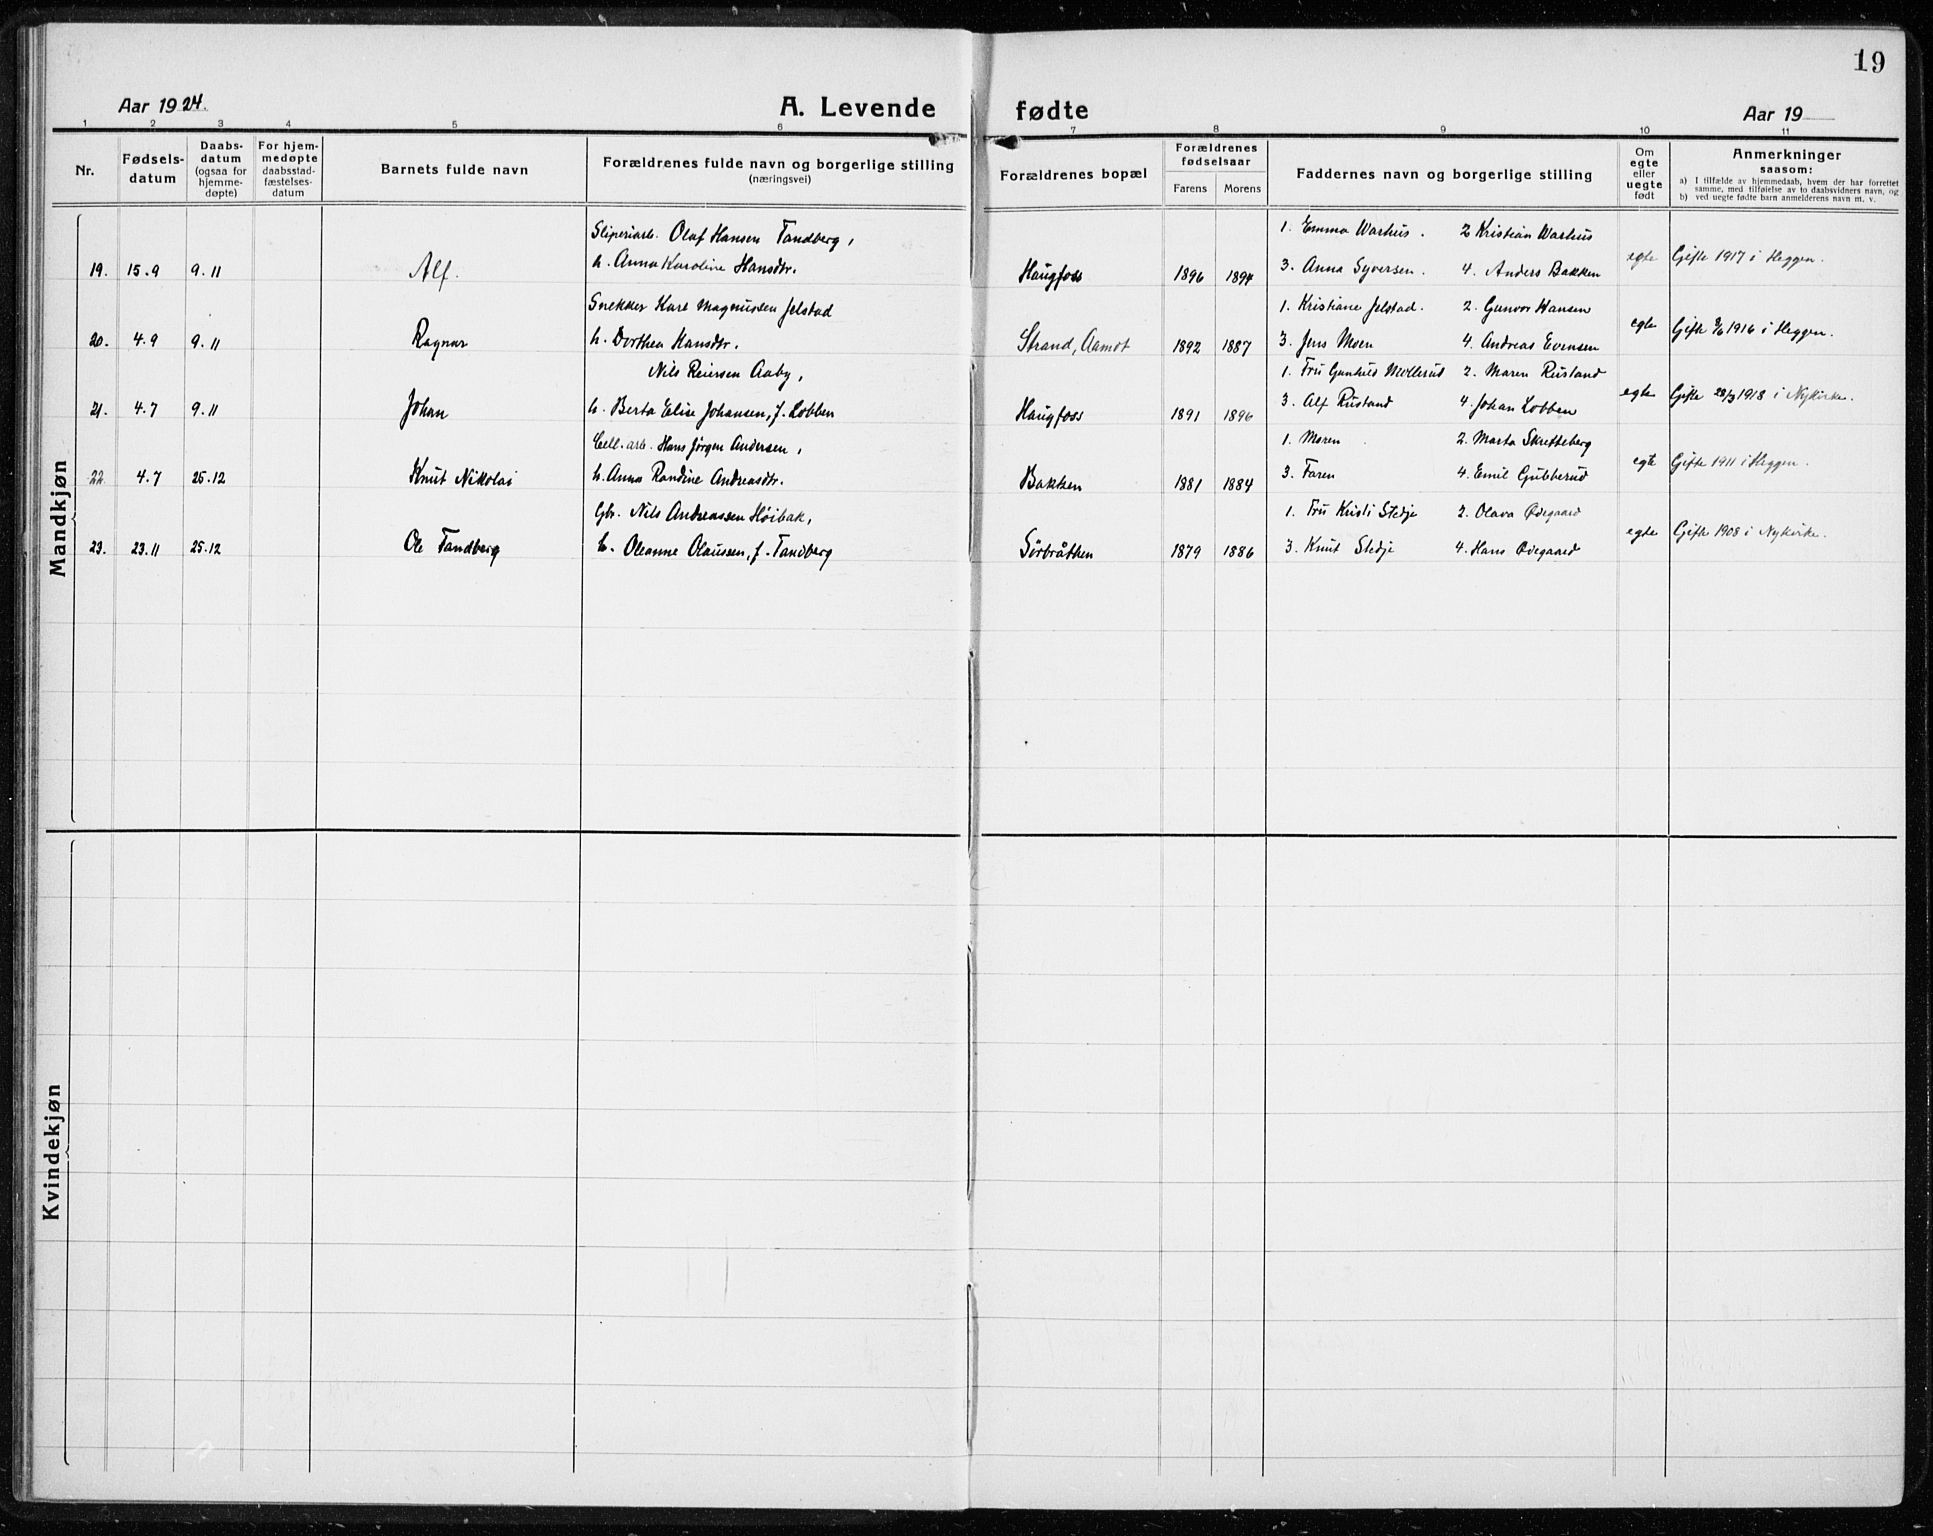 19
Aar 1924. A. Levende fødte Aar 19
1 2 3 4 5 6 7 8 9 10 11
Nr.
Fødsels-
datum
Daabs-
datum
(ogsaa for
hjemme-
døpte)
For hjem-
medøpte
daabsstad-
fæstelses-
datum
Barnets fulde navn
Forældrenes fulde navn og borgerlige stilling
(næringsvei)
Forældrenes bopæl
Forældrenes
fødselsaar
Farens Morens
Faddernes navn og borgerlige stilling
Om
egte
eller
uegte
født
Anmerkninger
saasom:
a) I tilfælde av hjemmedaab, hvem der har forrettet
samme, med tilføielse av to daabsvidners navn, og
b) ved uegte fødte barn anmelderens navn m. v.
Mandkjøn
Sliperiarb. Olaf Hansen Tandberg, 1. Emma Warhus. 2 Kristian Warhus
19. 15.9 9.11 Alf. h. Anna Karoline Hansdtr. Haugfoss 1896 1894 3. Anna Syversen. 4. Anders Bakken egte Gifte 1917 i Heggen.
Snekker Karl Magnussen Jelstad 1. Kristiane Jelstad. 2. Gunvor Hansen
20. 4.9 9.11 Ragnar h. Dorthea Hansdtr. Strand, Aamot 1892 1887 3. Jens Moen 4. Andreas Evensen egte Gifte 1916 i Heggen.
Nils Reiersen Aaby, 1. Fru Gunhild Møllerud 2. Maren Rustand
21. 4.7 9.11 Johan h. Berta Elise Johansen, f. Lobben Haugfoss 1891 1896 3. Alf Rustand 4. Johan Lobben egte Gifte 29/3 1918 i Nykirke.
Cell. arb. Hans Jørgen Andersen, 1. Moren 2. Marta Skretteberg
22 4.7 25.12 Knut Nikolai h. Anna Randine Andreasdtr. Bakken 1881 1884 3. Faren 4. Emil Gubberud egte Gifte 1911 i Heggen.
Gbr. Nils Andreassen Høibak, 1. Fru Kristi Stedje 2. Olava Ødegaard
23. 23.11 25.12 Ole Tandberg h. Oleanne Olaussen, f. Tandberg Sørbråtten 1879 1886 3. Knut Stedje 4. Hans Ødegaard egte Gifte 1908 i Nykirke.
Kvindekjøn